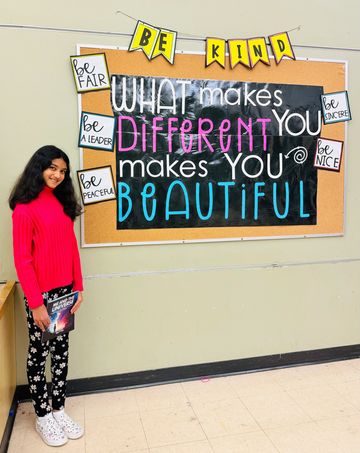 BE KIND
be FAIR
be A LEADER
be PEACEFUL
WHAT makes
DIFFERENT YOU
makes YOU
BEAUTIFUL
be SINCERE
be NICE